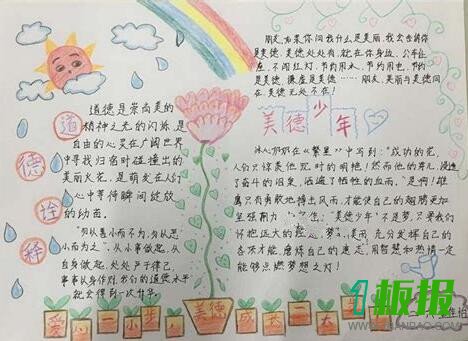 朋友,如果你问我什么是美丽,我会告诉你
是美德,美德处处有,就在你身边,公车让
座,不闯红灯,节约用水,节约用电,节约
是美德,谦虚是美德……朋友,美丽与美德同
在,美德无处不在!
美德少年
冰心奶奶在《繁星》中写到:"成功的花,
人们只惊羡她现时的明艳!然而她的芽儿,浸透
了奋斗的泪泉,洒遍了牺牲的血雨。"是啊!雏
鹰只有勇敢地搏击风雨,才能使自己的翅膀更加
坚强有力。
"美德少年"不是梦,只要我们
怀把远大的
充分发挥自己的
各项才能,磨炼自己的意志,用智慧和热情一定
能够点燃梦想之灯!
道德诠释
道德是崇尚美的
精神之光的闪烁,是
自由的心灵在广阔世界
中寻找归宿时碰撞出的
美丽火花,是萌发在人们
心中等待瞬间绽放
的幼苗。
"勿以善小而不为,勿以恶
小而为之",从小事做起,从
自身做起,处处严于律己,
事事以身作则,我们的道德水平
就会得到一次升华。
爱心一小步
美德
成长一大步
1板报